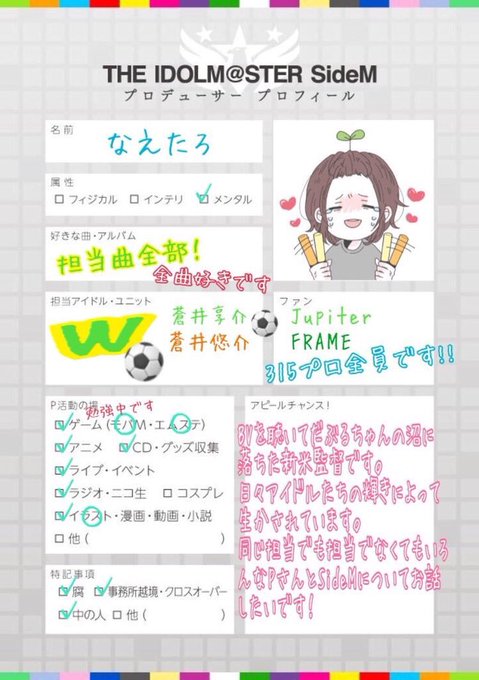 THE IDOLM@STER SideM
プロデューサー プロフィール
名前
なえたろ
属性
フィジカル インテリ メンタル
好きな曲・アルバム
担当曲全部!
全曲好きです
担当アイドル・ユニット
W
蒼井享介
蒼井悠介
ファン
Jupiter
FRAME
315プロ全員です!!
P活動の場
勉強中です
ゲーム(モバM・エムステ)
アニメ CD・グッズ収集
ライブ・イベント
ラジオ・ニコ生 コスプレ
イラスト・漫画・動画・小説
他( )
特記事項
腐 事務所越境・クロスオーバー
中の人 他( )
アピールチャンス!
BVを聴いてだぶるちゃんの沼に
落ちた新米監督です。
日々アイドルたちの輝きによって
生かされています。
同じ担当でも担当でなくてもいろ
んなPさんとSideMについてお話
したいです!